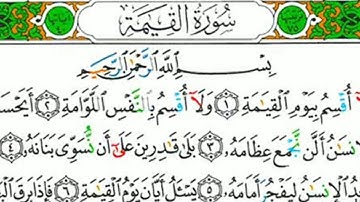 سُورَةُ ٱلْقِيَٰمَةِ
بِسْمِ ٱللَّهِ ٱلرَّحْمَٰنِ ٱلرَّحِيمِ
أُقْسِمُ بِيَوْمِ ٱلْقِيَٰمَةِ ١ وَلَآ أُقْسِمُ بِٱلنَّفْسِ ٱللَّوَّامَةِ ٢ أَيَحْسَ
نسَٰنُ أَلَّن نَّجْمَعَ عِظَامَهُۥ ٣ بَلَىٰ قَٰدِرِينَ عَلَىٰٓ أَن نُّسَوِّىَ بَنَانَهُۥ ٤
ٱلْإِنسَٰنُ لِيَفْجُرَ أَمَامَهُۥ ٥ يَسْـَٔلُ أَيَّانَ يَوْمُ ٱلْقِيَٰمَةِ ٦ فَإِذَا بَرِقَ